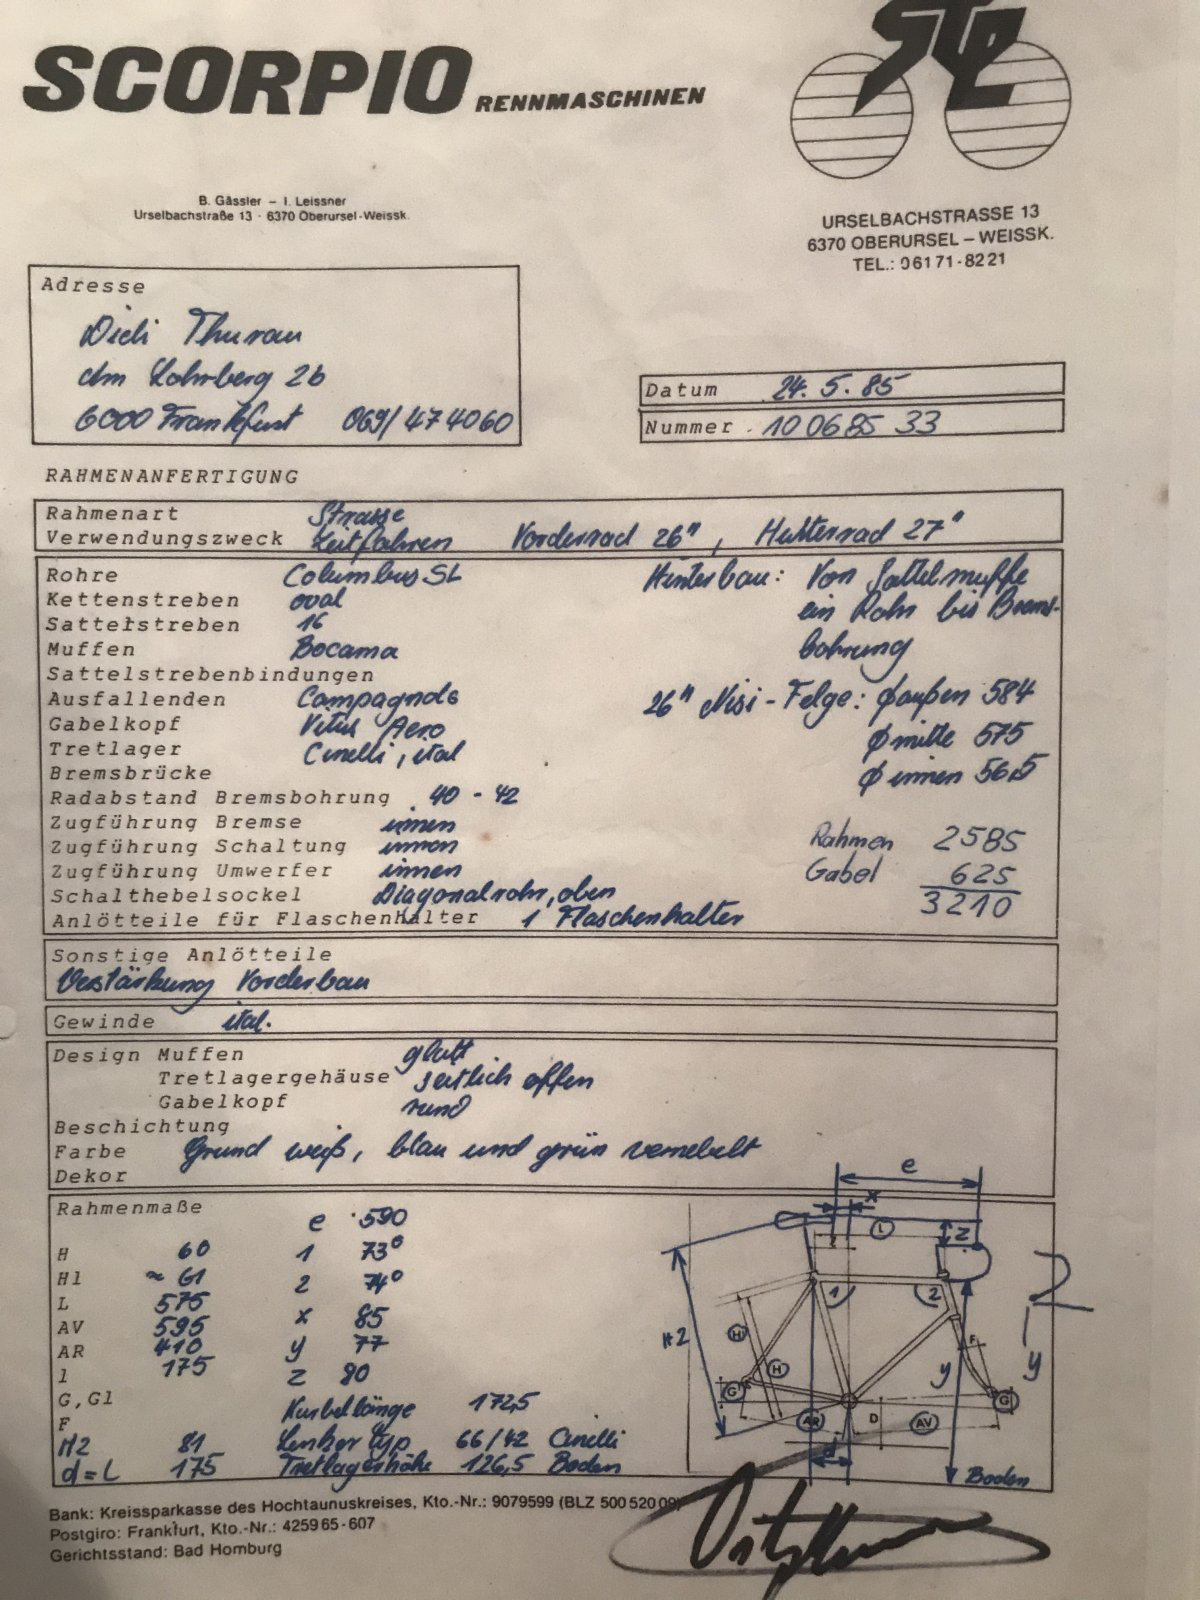 SCORPIO RENNMASCHINEN
STL
B. Gässler – I. Leissner
Urselbachstraße 13 · 6370 Oberursel-Weissk.
URSELBACHSTRASSE 13
6370 OBERURSEL – WEISSK.
TEL.: 06171-8221
Adresse
Didi Thurau
Am Lohrberg 2b
6000 Frankfurt 069/474060
Datum 24.5.85
Nummer 100685 33
RAHMENANFERTIGUNG
Rahmenart Strasse
Verwendungszweck Zeitfahren Vorderrad 26", Hinterrad 27"
Rohre Columbus SL Hinterbau: Von Sattelmuffe
Kettenstreben oval ein Rohr bis Brems-
Sattelstreben 16
Muffen Bocama bohrung
Sattelstrebenbindungen
Ausfallenden Campagnolo 26" Nisi-Felge: ϕaußen 584
Gabelkopf Vitus Aero ϕmitte 575
Tretlager Cinelli, ital
Bremsbrücke ϕ innen 56,5
Radabstand Bremsbohrung 40 - 42
Zugführung Bremse innen
Zugführung Schaltung innen Rahmen 2585
Zugführung Umwerfer innen Gabel 625
Schalthebelsockel Diagonalrohr, oben 3210
Anlötteile für Flaschenhalter 1 Flaschenhalter
Sonstige Anlötteile
Verstärkung Vorderbau
Gewinde ital.
Design Muffen glatt
Tretlagergehäuse seitlich offen
Gabelkopf rund
Beschichtung
Farbe Grund weiß, blau und grün vernebelt
Dekor
Rahmenmaße e 590
H 60 1 73°
H1 ≈ 61 2 74°
L 575
AV 595 x 85
AR 410 y 77
l 175 z 80
G,G1
F Kurbellänge 172,5
H2 81 Lenker typ 66/42 Cinelli
d=L 175 Tretlagerhöhe 126,5 Boden
e
x
L
z
1 2
H2
H
H
F
y
y
G
G
AR
D
AV
d
Boden
Bank: Kreissparkasse des Hochtaunuskreises, Kto.-Nr.: 9079599 (BLZ 500 520 09)
Postgiro: Frankfurt, Kto.-Nr.: 42596 5-607
Gerichtsstand: Bad Homburg